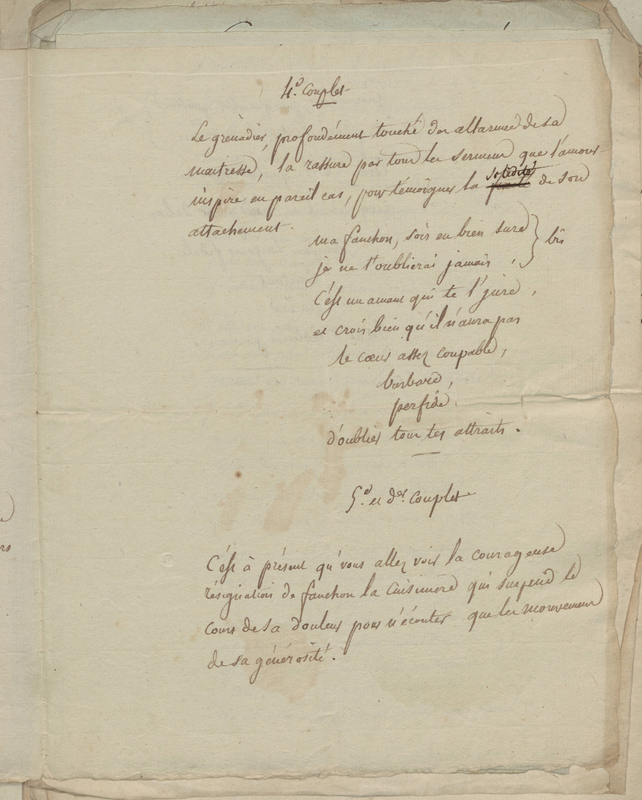 4.e Couplet
Le grenadier, profondément touché des allarmes de sa
maitresse, la rassure par tous les sermens que l'amour
inspire en pareil cas, pour témoigner la solidité de son
attachement.
ma fanchon, sois en bien sure } bis
je ne t'oublierai jamais,
C'est un amant qui te l'jure,
et crois bien qu'il n'aura pas
le cœur assez coupable,
barbare,
perfide,
d'oublier tous tes attraits.
5.e et d.er Couplet
C'est à présent qu'vous allez voir la courageuse
résignation de fanchon la Cuisiniere qui suspend le
cours de sa douleur pour n'écouter que les mouvemens
de sa générosité.